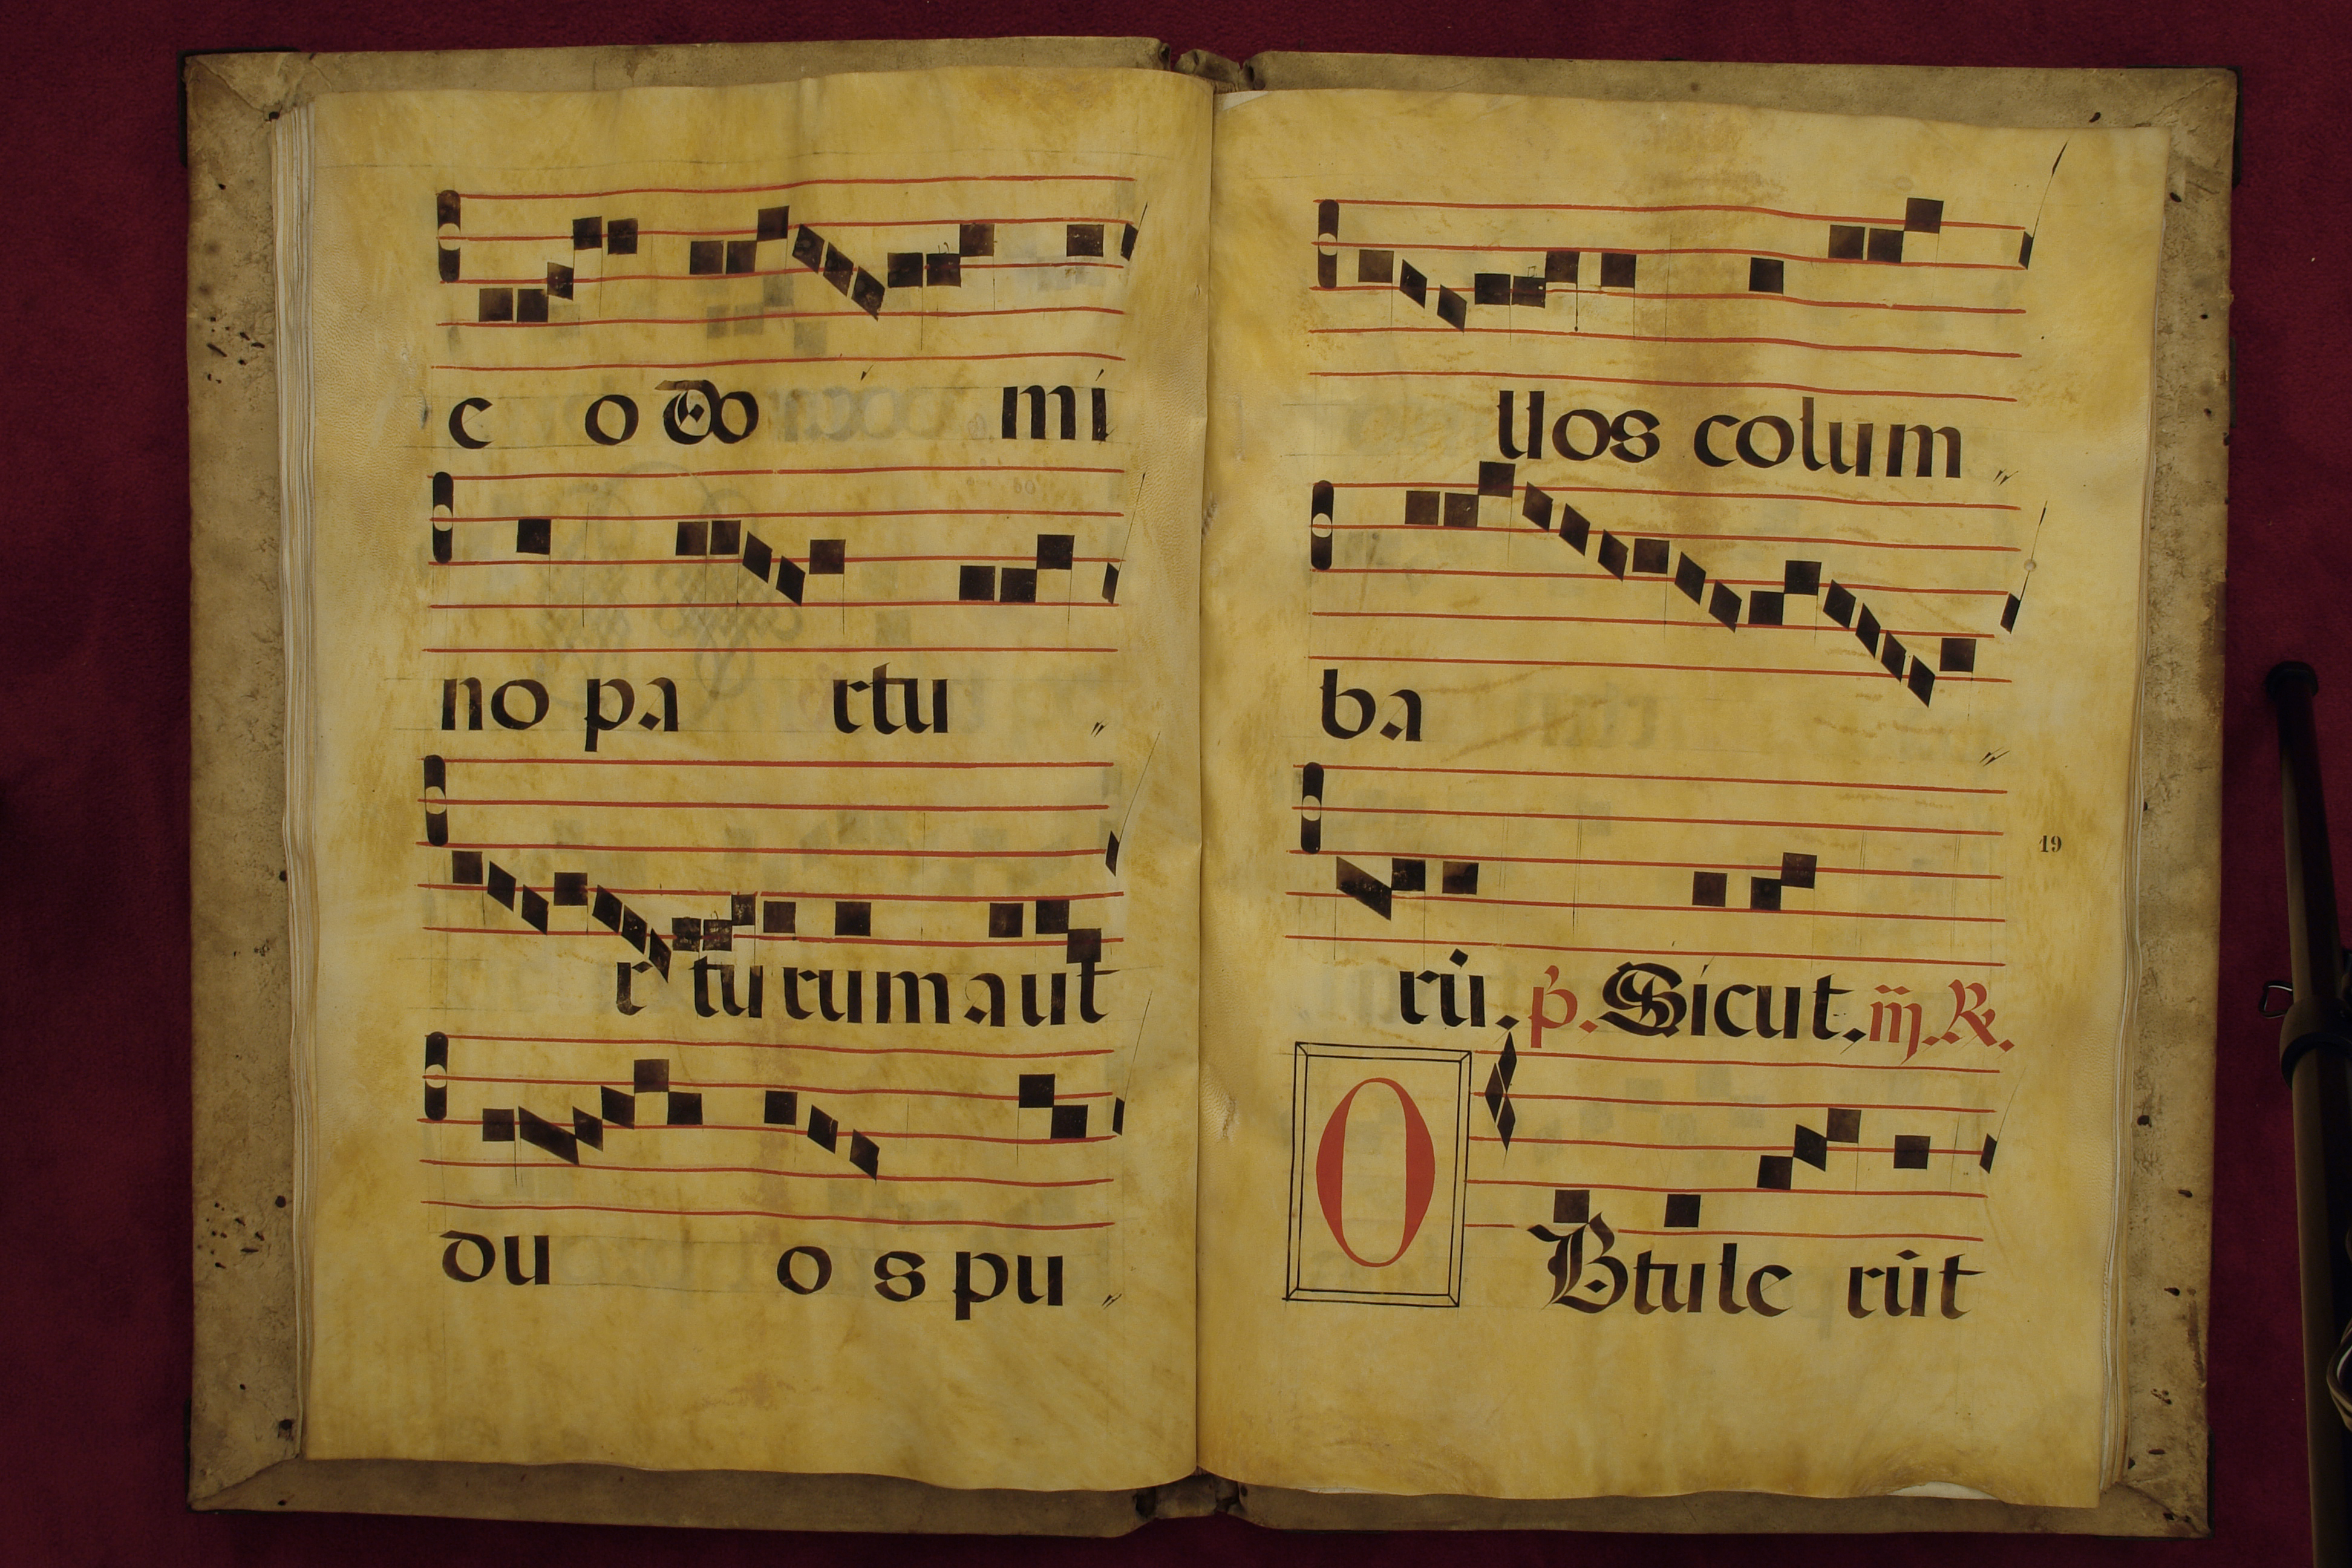 c o do mi
no pa rtu
r tu rum aut
du o s pu
llos colum
ba
19
rū. p̄. Sicut. iij. R.
O Btule rūt